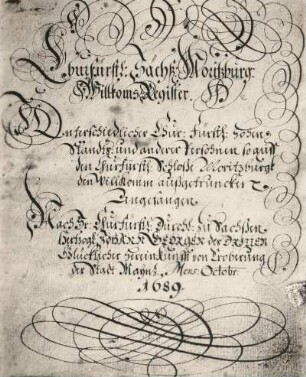 Churfürstl: Sächß: Moritzburg:
Willkoms Register.
Unterschiedlicher Chur: Fürstl: Hohen
Stands: und anderer Persohnen so auff
den Churfürstl: Schloße Moritzburgk
den Willkomm außgetruncken
Angefangen
Nach Sr: Churfürstl: Durchl: zu Sachßen
Herzog Johann Georgen der Dritten
Glücklicher zurückkunfft von Eroberung
der Stadt Mayntz Mens: Octobr:
1689.